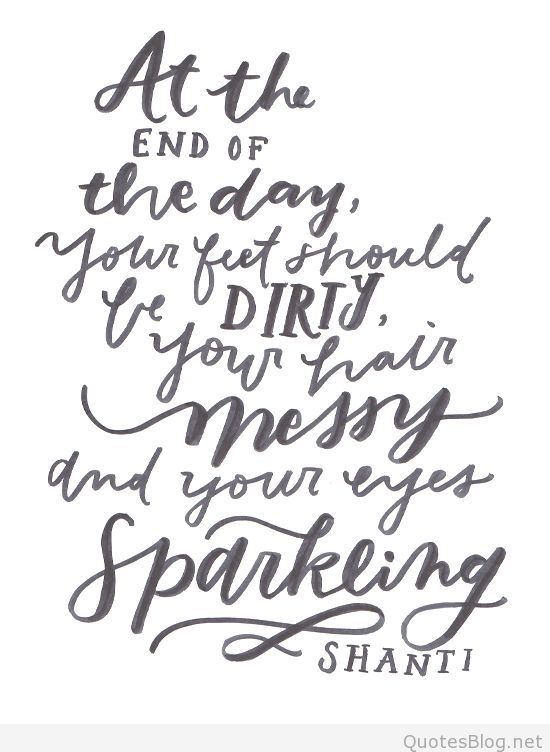 At the
END OF
the day,
your feet should
be DIRTY,
your hair
messy
and your eyes
Sparkling
SHANTI
QuotesBlog.net